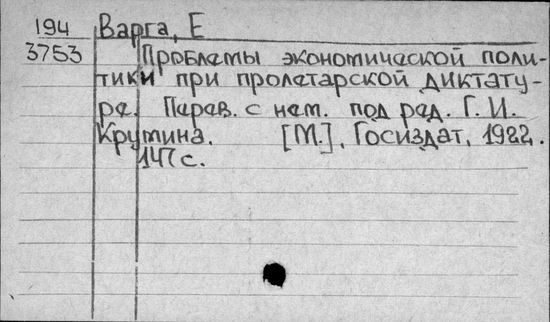 194 Варга, Е
3753 Проблемы экономической поли-
тики при пролетарской диктату-
ре. Перев. с нем. под ред. Г. И.
Крумина. [М.], Госиздат, 1922.
147 с.